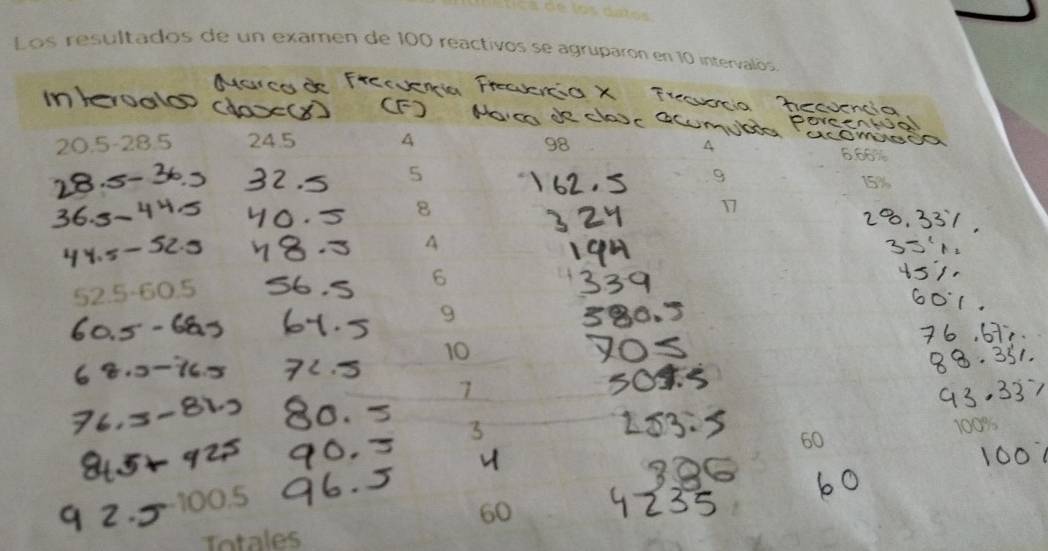 de los datos
Los resultados de un examen de 100 reactivos se agruparon en 10 intervalos.
Intervalos Marca de clase(x) Frecuencia (F) Frecuencia x Marca de clase Frecuencia acumulada Frecuencia porcentual acumulada
20.5-28.5 24.5 4 98 4 6.66%
28.5-36.5 32.5 5 162.5 9 15%
36.5-44.5 40.5 8 324 17 28.33%
44.5-52.5 48.5 4 194 35%
52.5-60.5 56.5 6 339 45%
60.5-68.5 64.5 9 580.5 60%
68.5-76.5 72.5 10 705 76.67%
76.5-84.5 80.5 7 88.33%
84.5- 92.5 90.5 3 253.5 60 93.33%
92.5-100.5 96.5 4 386 60 100%
60 4235 100%
Totales